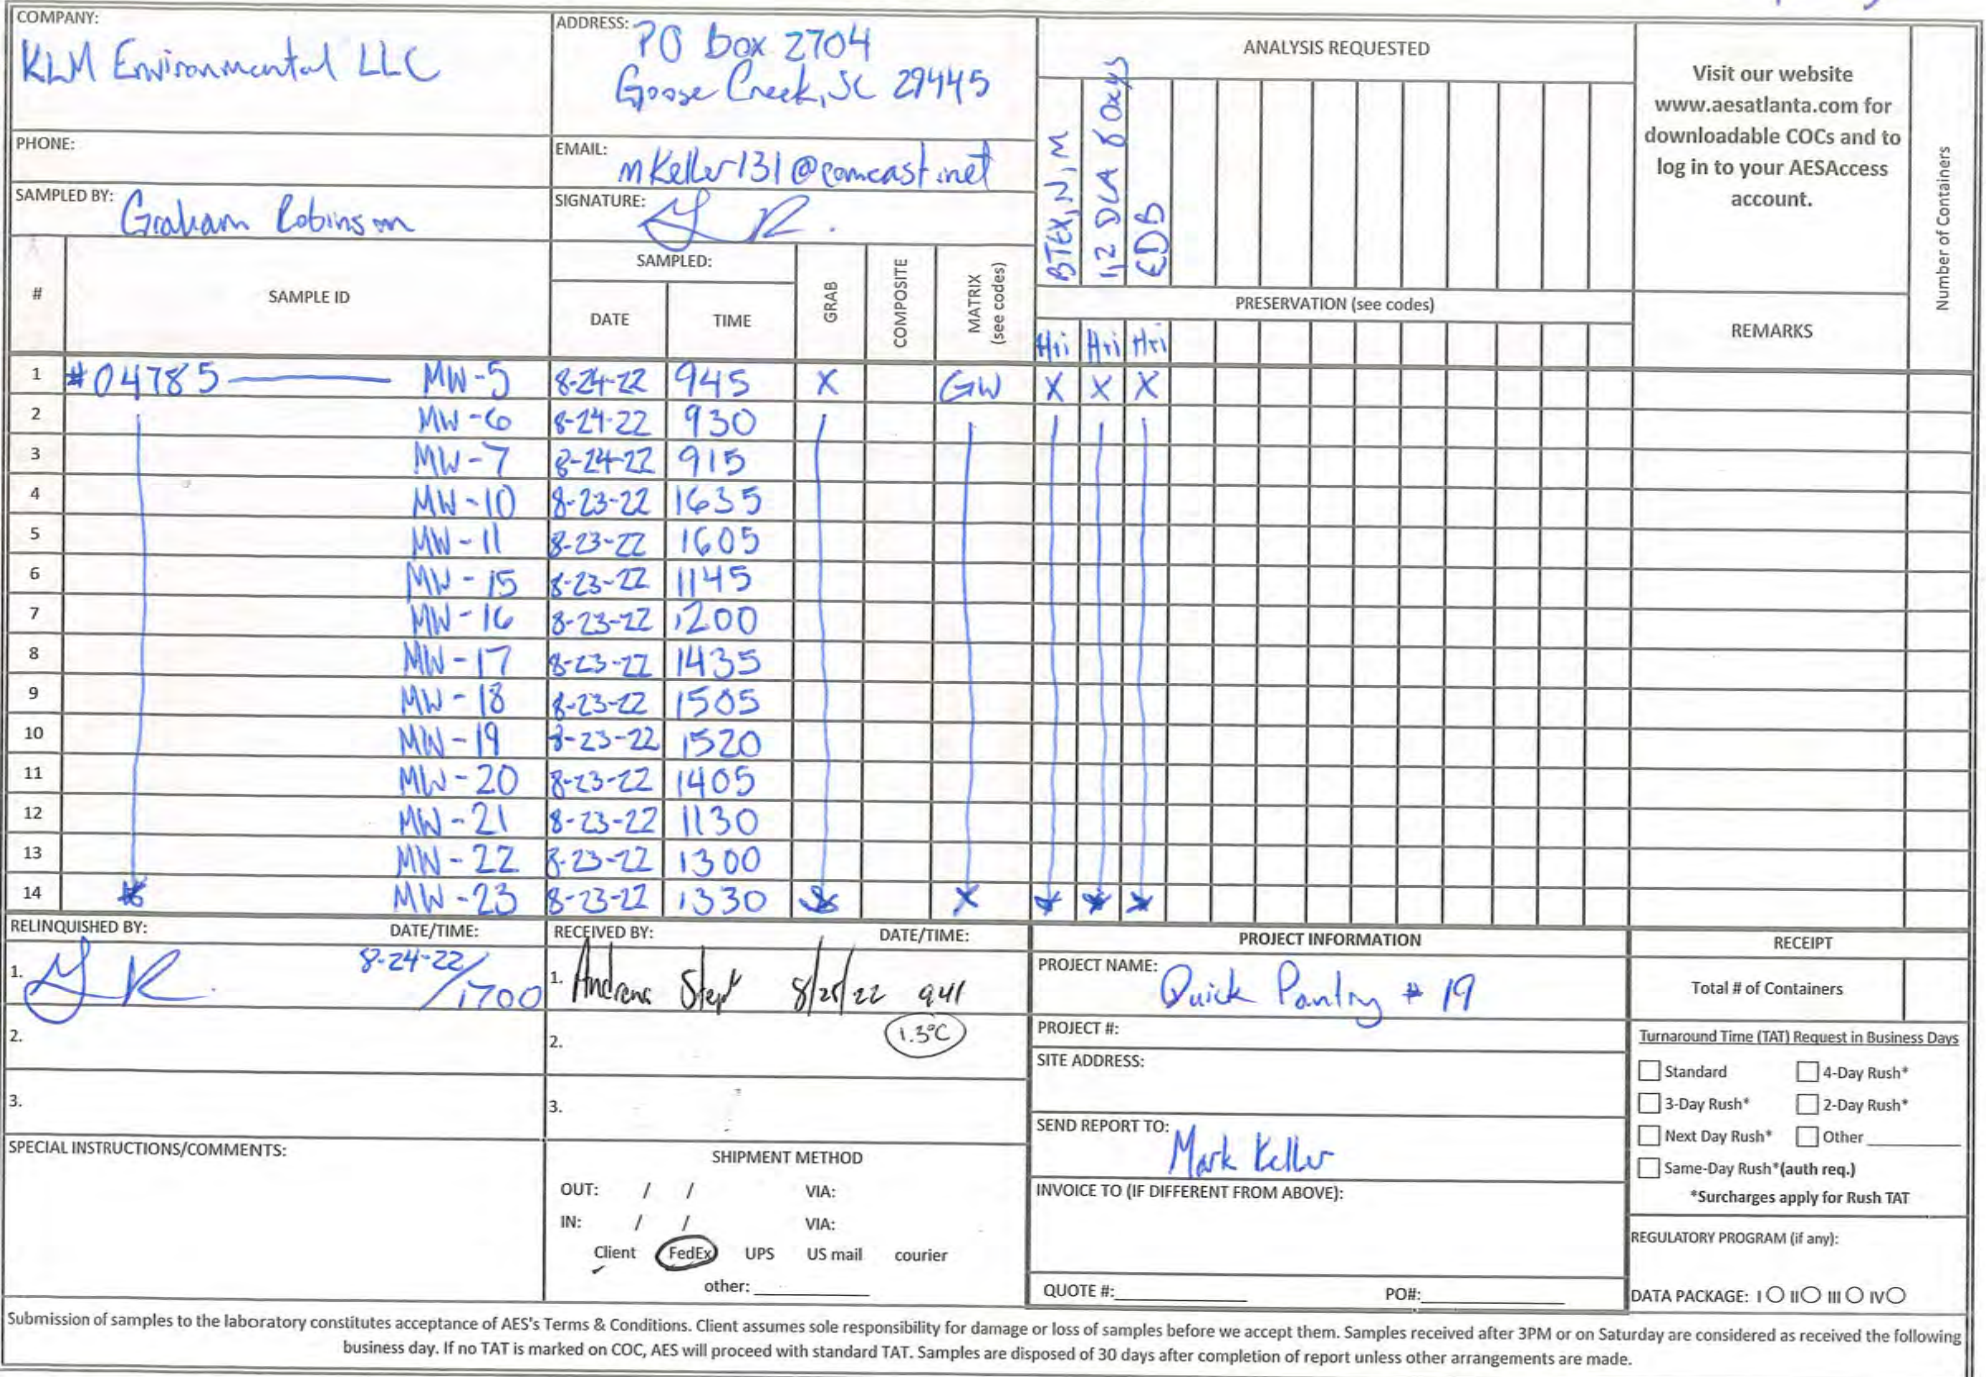 COMPANY:
KLM Environmental LLC
ADDRESS: PO Box 2704
Goose Creek, SC 29445
PHONE:
EMAIL: mkeller131@comcast.net
SAMPLED BY: Graham Robinson
SIGNATURE:
ANALYSIS REQUESTED
BTEX, N, M
1,2 DCA 8 Oxys
EDB
Visit our website
www.aesatlanta.com for
downloadable COCs and to
log in to your AESAccess
account.
Number of Containers
# SAMPLE ID
SAMPLED:
DATE TIME
GRAB
COMPOSITE
MATRIX
(see codes)
PRESERVATION (see codes)
REMARKS
H+i H+i H+i
1 #04785 MW-5 8-24-22 945 X GW X X X
2 MW-6 8-24-22 930
3 MW-7 8-24-22 915
4 MW-10 8-23-22 1635
5 MW-11 8-23-22 1605
6 MW-15 8-23-22 1145
7 MW-16 8-23-22 1200
8 MW-17 8-23-22 1435
9 MW-18 8-23-22 1505
10 MW-19 8-23-22 1520
11 MW-20 8-23-22 1405
12 MW-21 8-23-22 1130
13 MW-22 8-23-22 1300
14 MW-23 8-23-22 1330
RELINQUISHED BY: DATE/TIME:
1. 8-24-22/1700
2.
3.
RECEIVED BY: DATE/TIME:
1. 8/25/22 941
2. 1.3°C
3.
PROJECT INFORMATION
PROJECT NAME: Quick Pantry # 19
PROJECT #:
SITE ADDRESS:
SEND REPORT TO: Mark Keller
INVOICE TO (IF DIFFERENT FROM ABOVE):
QUOTE #: PO#:
RECEIPT
Total # of Containers
Turnaround Time (TAT) Request in Business Days
Standard 4-Day Rush*
3-Day Rush* 2-Day Rush*
Next Day Rush* Other
Same-Day Rush*(auth req.)
*Surcharges apply for Rush TAT
REGULATORY PROGRAM (if any):
DATA PACKAGE: I II III IV
SPECIAL INSTRUCTIONS/COMMENTS:
SHIPMENT METHOD
OUT: / / VIA:
IN: / / VIA:
Client FedEx UPS US mail courier
other:
Submission of samples to the laboratory constitutes acceptance of AES's Terms & Conditions. Client assumes sole responsibility for damage or loss of samples before we accept them. Samples received after 3PM or on Saturday are considered as received the following
business day. If no TAT is marked on COC, AES will proceed with standard TAT. Samples are disposed of 30 days after completion of report unless other arrangements are made.